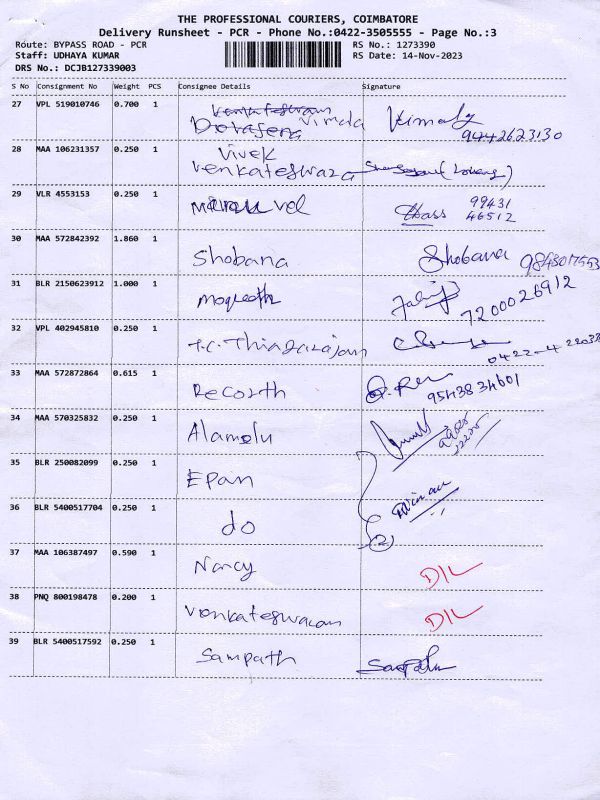 THE PROFESSIONAL COURIERS, COIMBATORE
Delivery Runsheet - PCR - Phone No.:0422-3505555 - Page No.:3
Route: BYPASS ROAD - PCR RS No.: 1273390
Staff: UDHAYA KUMAR RS Date: 14-Nov-2023
DRS No.: DCJB127339003
S No Consignment No Weight PCS Consignee Details Signature
27 VPL 519010746 0.700 1 Vimala Vimala
9442623130
28 MAA 106231357 0.250 1 Vivek
Venkateswara
29 VLR 4553153 0.250 1 vel 99431
46512
30 MAA 572842392 1.860 1 Shobana Shobana
31 BLR 2150623912 1.000 1 7200026912
32 VPL 402945810 0.250 1 T.C. Thiagarajan
33 MAA 572872864 0.615 1 Recorth 9543834601
34 MAA 570325832 0.250 1 Alamelu
35 BLR 250082099 0.250 1 Epan
36 BLR 5400517704 0.250 1 do
37 MAA 106387497 0.590 1 Nancy D/L
38 PNQ 800198478 0.200 1 Venkateswaran D/L
39 BLR 5400517592 0.250 1 Sampath Sampath